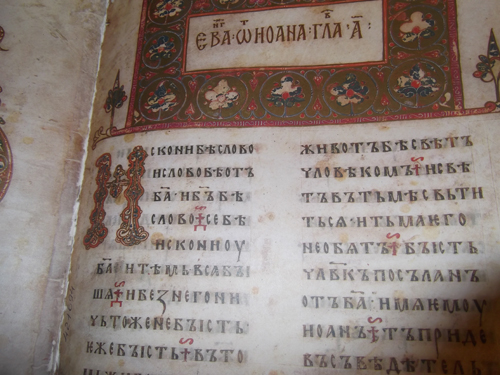 ЕВА·ѠИОАНА·ГЛА·А҃:
ИСКОНИБѢСЛОВО
ИСЛОВОБѢОТ
БА҃·ИБЪ҃БѢ
СЛОВО·СЕБѢ
ИСКОНИОУ
БА҃·ИТѢМЬВСАБЪІ
ШѦ·ИБЕЗНЕГОНИ
ЧЬТОЖЕНЕБЪІСТЬ
ЕЖЕБЪІСТЬ·ВЪТО
ЖИВОТЪБѢСВѢТ
ЧЛОВѢКОМЪ·ИСВѢ
ТЪВЪТЬМѢСВЬТИ
ТЬСѦ·ИТЬМАЕГО
НЕОБѦТЪ·БЪІСТЬ
ЧЛ҃ВКЪПОСЪЛАН
ОТЪБА҃·ИМѦЕМОУ
ИОАНЪ·ТЪПРИДЕ
ВЪСЪВѢДѢТЕЛЬ